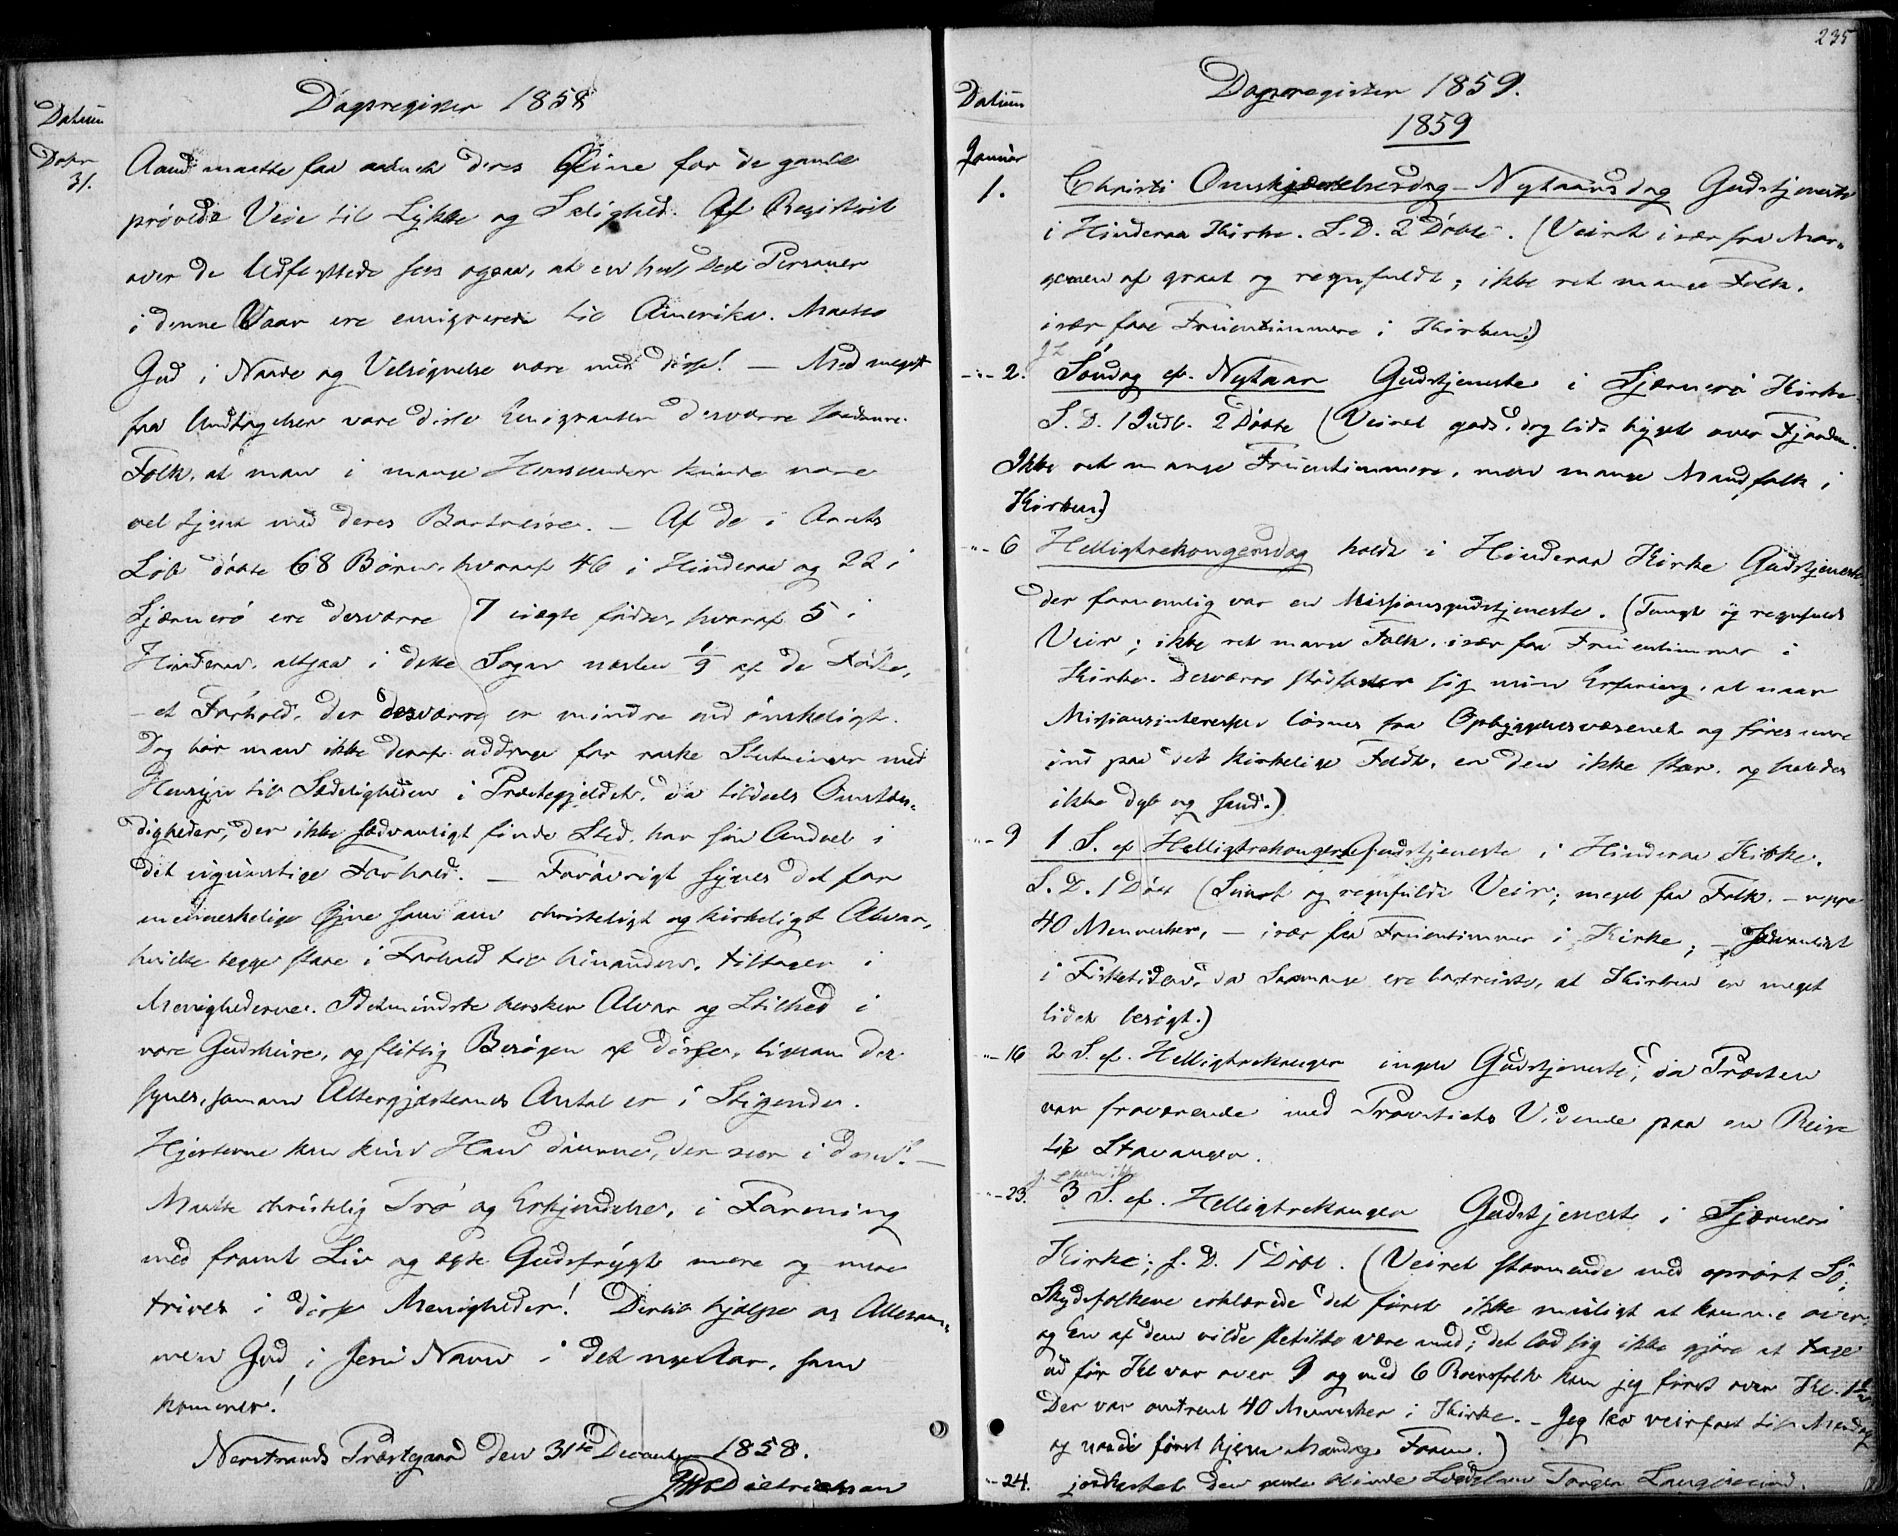 Dagsregister 1858
Datum
Decbr
31.
Aand maatte faa deres Øine for de gamle
prøvede Veie til Lykke og Salighed. Af Registret
over de Udflyttede sees ogsaa, at en heel Deel Personer
i denne Vaar ere emigrerede til Amerika. Maatte
Gud i Naade og Velsignelse være med disse! — Med meget
faa Undtagelser vare disse Emigranter desværre saadanne
Folk, at man i mange Henseender kunde være
vel tjent med deres Bortreise. — Af de i Aarets
Løb døbte 68 Børn, hvoraf 46 i Hinderaa og 22 i
Sjærnerø ere desværre 7 uægte fødte, hvoraf 5 i
Hinderaa, altsaa i dette Sogn næsten 1/9 af de Fødte,
— et Forhold, der desværre er mindre end ønskeligt.
Dog bør man ikke deraf uddrage for raske Slutninger med
Hensyn til Sædeligheden i Præstegjeldet, da tildeels Omstæn-
digheder, der ikke sædvanligt finde Sted, har sin Andeel i
det ugunstige Forhold. — Forøvrigt synes det for
menneskelige Øine som om christeligt og kirkeligt Alvor,
hvilke begge staae i Forhold til hinanden, tiltager i
Menighederne. Idetmindste hersker Alvor og Stilhed i
vore Gudshuse, og flittig Besøgen af disse, ligesom det
synes, som om Altergjæsternes Antal er i Stigende.
Hjerterne kan kun Han dømme, der seer i Løndom! —
Maatte christelig Tro og Erkjendelse, i Forening
med fromt Liv og ægte Gudsfrygt mere og mere
trives i disse Menigheder! Dertil hjelpe os Allesam-
men Gud i Jesu Navn i det nye Aar, som
kommer!
Nerstrands Præstgaard den 31te December 1858.
Dietrichson
235
Dagsregister 1859.
Datum
1859
Januar
1. Christi Omskjærelsesdag – Nytaarsdag Gudstjeneste
i Hinderaa Kirke. S. D. 2 Døbte. (Veiret især fra Mor-
genen af graat og regnfuldt; ikke ret mange Folk,
især faae Fruentimmere i Kirken.)
– 2. Søndag ef. Nytaar Gudstjeneste i Sjærnerø Kirke
S. D. 1 Indl. 2 Døbte (Veiret godt, dog lidt bygot over Fjorden.
Ikke ret mange Fruentimmere, men mange Mandfolk i
Kirken)
– 6 Helligtrekongersdag holdt i Hinderaa Kirke Gudstjeneste,
der fornemlig var en Missionsgudstjeneste. (Tungt og regnfuldt
Veir; ikke ret mange Folk, især faa Fruentimmer i
Kirke. Desværre stadfæster sig min Erfaring, at naar
Missionsinteressen løsnes fra Opbyggelsesvæsenet og føres mere
ind paa det kirkelige Feldt, er den ikke stor, og saaledes
ikke dyb og sand.)
– 9 1 S. ef Helligtrekonger Gudstjeneste i Hinderaa Kirke.
S. D. 1 Døbt (Suurt og regnfuldt Veir; meget faa Folk, — neppe
40 Mennesker, — især faa Fruentimmer i Kirke; — sædvanligt
i Fisketiden, da Saamange ere bortreiste, at Kirken er meget
lidet besøgt.)
– 16 2 S. ef. Helligtrekonger ingen Gudstjeneste, da Præsten
var fraværende med Provstiets Vidende paa en Reise
til Stavanger.
– 23. 3 S. ef. Helligtrekonger Gudstjeneste i Sjærnerø
Kirke; S. D. 1 Døbt. (Veiret stormende med oprørt Sø;
Skydsfolkene erklærede det først ikke muligt at komme over,
og En af dem vilde slet ikke være med; det lod sig ikke gjøre at tage
ud før Kl var over 9 og med 6 Roersfolk kom jeg først over Kl. 1½
Der var omtrent 40 Mennesker i Kirke. — Jeg laa veirfast til Mandag
og naaede først hjem Mandags Form.)
– 24. jordkastet den blinde Torger